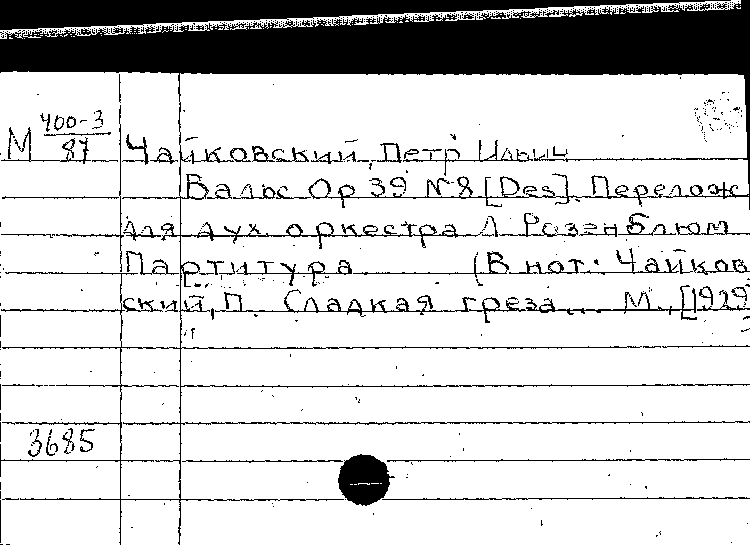 М 400-3/87
Чайковский, Петр Ильич
Вальс Op 39 №8 [Des]. Перелож
для дух. оркестра Л. Розенблюм
Партитура. (В нот: Чайков
ский, П. Сладкая греза... М., [1929
3685